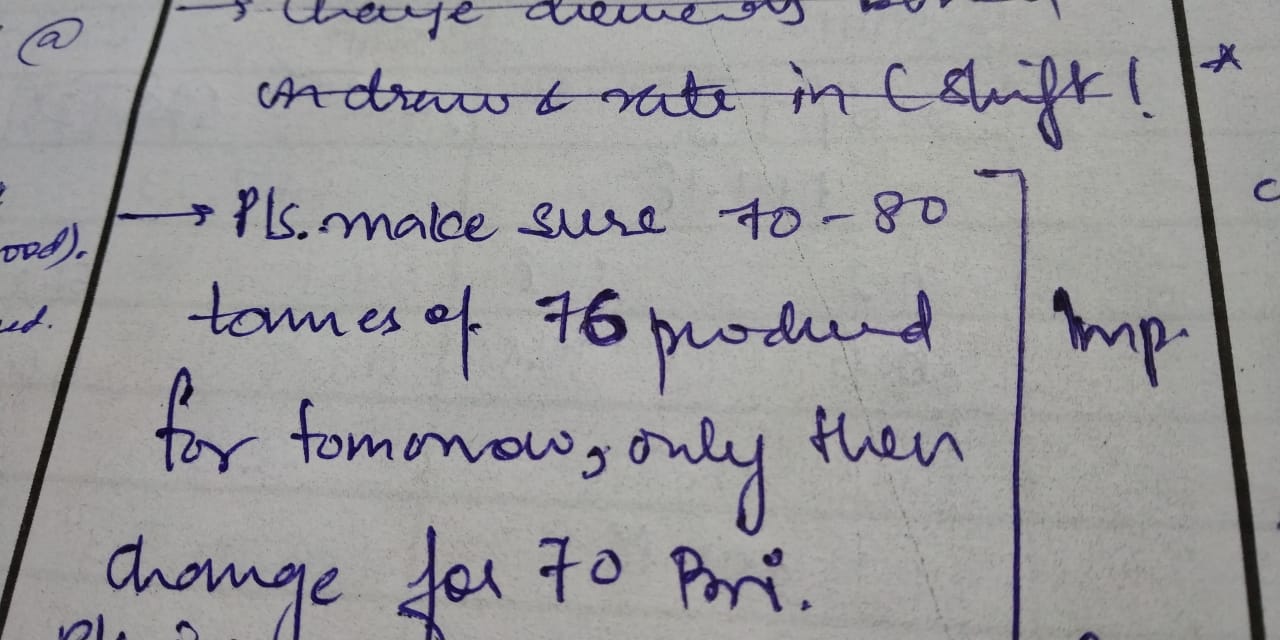 @
→ Change elements
on draw & rate in C shift!
*
→ Pls. make sure 70-80
tonnes of 76 produced
for tomorrow, only then
change for 70 Bri.
Imp.
ood).
ed.